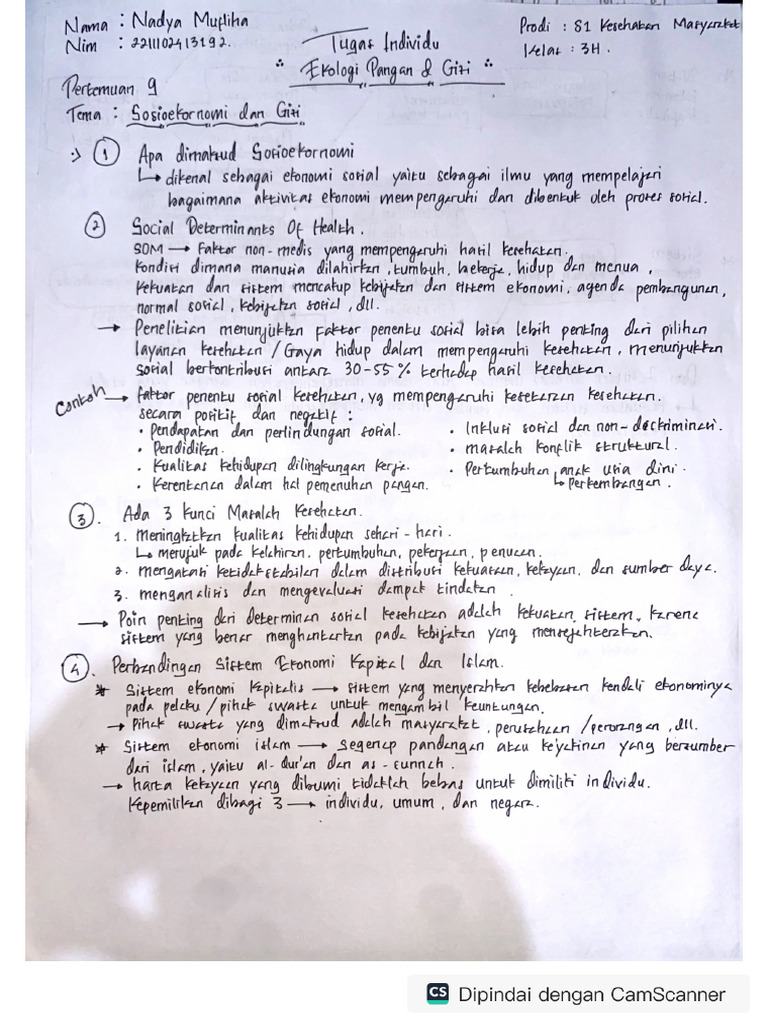 Nama : Nadya Mufliha
Nim : 2211102413192.
Prodi : S1 Kesehatan Masyarakat
Kelas : 3H.
Tugas Individu
Ekologi Pangan & Gizi
Pertemuan 9
Tema : Sosioekornomi dan Gizi
① Apa dimaksud Sosioekornomi
↳ dikenal sebagai ekonomi sosial yaitu sebagai ilmu yang mempelajari
bagaimana aktivitas ekonomi mempengaruhi dan dibentuk oleh proses sosial.
② Social Determinants Of Health.
SOM → Faktor non-medis yang mempengaruhi hasil kesehatan.
Kondisi dimana manusia dilahirkan, tumbuh, bekerja, hidup dan menua,
kekuatan dan sistem mencakup kebijakan dan sistem ekonomi, agenda pembangunan,
normal sosial, kebijakan sosial, dll.
→ Penelitian menunjukkan faktor penentu sosial bisa lebih penting dari pilihan
layanan kesehatan / Gaya hidup dalam mempengaruhi kesehatan, menunjukkan
sosial berkontribusi antara 30-55 % terhadap hasil kesehatan.
Contoh → faktor penentu sosial kesehatan, yg mempengaruhi kesetaraan kesehatan.
secara positif dan negatif :
• Pendapatan dan perlindungan sosial.
• Pendidikan.
• Kualitas kehidupan dilingkungan kerja.
• Kerentanan dalam hal pemenuhan pangan.
• Inklusi sosial dan non-deskriminasi.
• masalah konflik struktural.
• Pertumbuhan, anak usia dini.
↳ Perkembangan.
③. Ada 3 kunci Masalah Kesehatan.
1. Meningkatkan kualitas kehidupan sehari-hari.
↳ merujuk pada kelahiran, pertumbuhan, pekerjaan, penuaan.
2. mengatasi ketidakstabilan dalam distribusi kekuatan, kekayaan, dan sumber daya.
3. menganalisis dan mengevaluasi dampak tindakan.
→ Poin penting dari determinan sosial kesehatan adalah kekuatan sistem, karena
sistem yang benar menghantarkan pada kebijakan yang mensejahterakan.
④. Perbandingan Sistem Ekonomi Kapital dan Islam.
* Sistem ekonomi kapitalis → sistem yang menyerahkan kebebasan kendali ekonominya
pada pelaku / pihak swasta untuk mengambil keuntungan.
→ Pihak swasta yang dimaksud adalah masyarakat, perusahaan / perorangan, dll.
* Sistem ekonomi islam → segenap pandangan atau keyakinan yang bersumber
dari islam, yaitu al-qur'an dan as-sunnah.
→ harta kekayaan yang dibumi tidaklah bebas untuk dimiliki individu.
Kepemilikan dibagi 3 → individu, umum, dan negara.
CS Dipindai dengan CamScanner